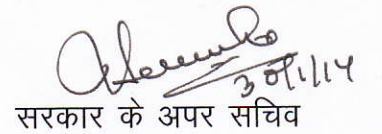 30/1/14
सरकार के अपर सचिव